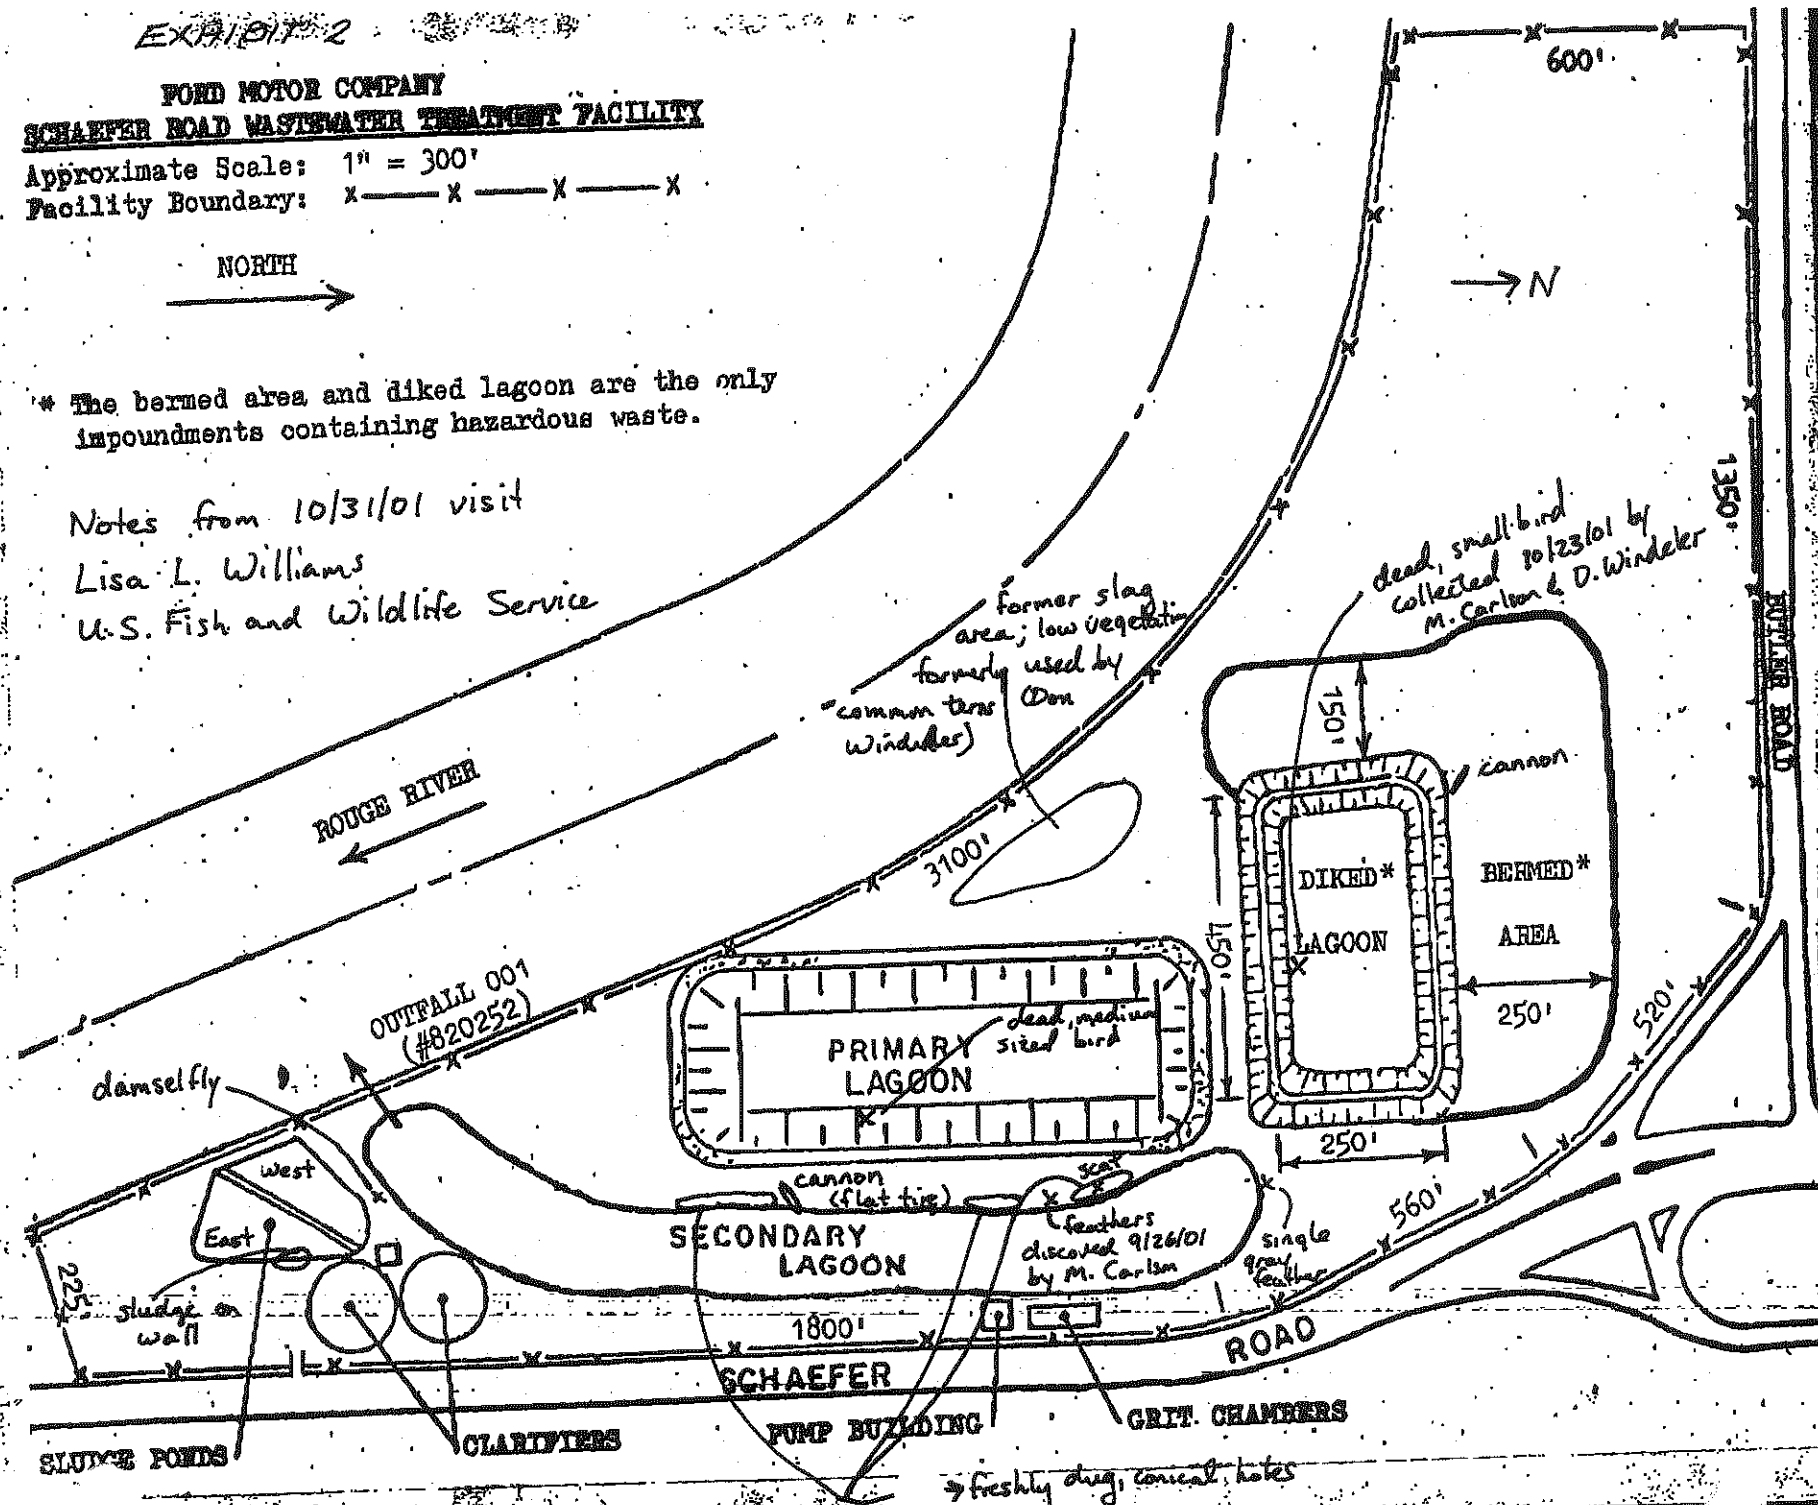 EXHIBIT 2
FORD MOTOR COMPANY
SCHAEFER ROAD WASTEWATER TREATMENT FACILITY
Approximate Scale: 1" = 300'
Facility Boundary: X — X — X — X
NORTH
* The bermed area and diked lagoon are the only
impoundments containing hazardous waste.
Notes from 10/31/01 visit
Lisa L. Williams
U.S. Fish and Wildlife Service
600'
N
1350'
BUTLER ROAD
dead, small bird
collected 10/23/01 by
M. Carlson & D. Windeler
former slag
area; low vegetation
formerly used by
common terns (Don
Windeler)
150'
cannon
ROUGE RIVER
3100'
450'
DIKED*
LAGOON
BERMED*
AREA
250'
250'
520'
560'
OUTFALL 001
(#820252)
PRIMARY
LAGOON
dead, medium
sized bird
damselfly
West
East
cannon
(flat tire)
scat
SECONDARY
LAGOON
feathers
discoved 9/26/01
by M. Carlson
single
gray
feather
225'
sludge on
wall
1800'
SCHAEFER ROAD
SLUDGE PONDS
CLARIFIERS
PUMP BUILDING
GRIT CHAMBERS
freshly dug, conical holes